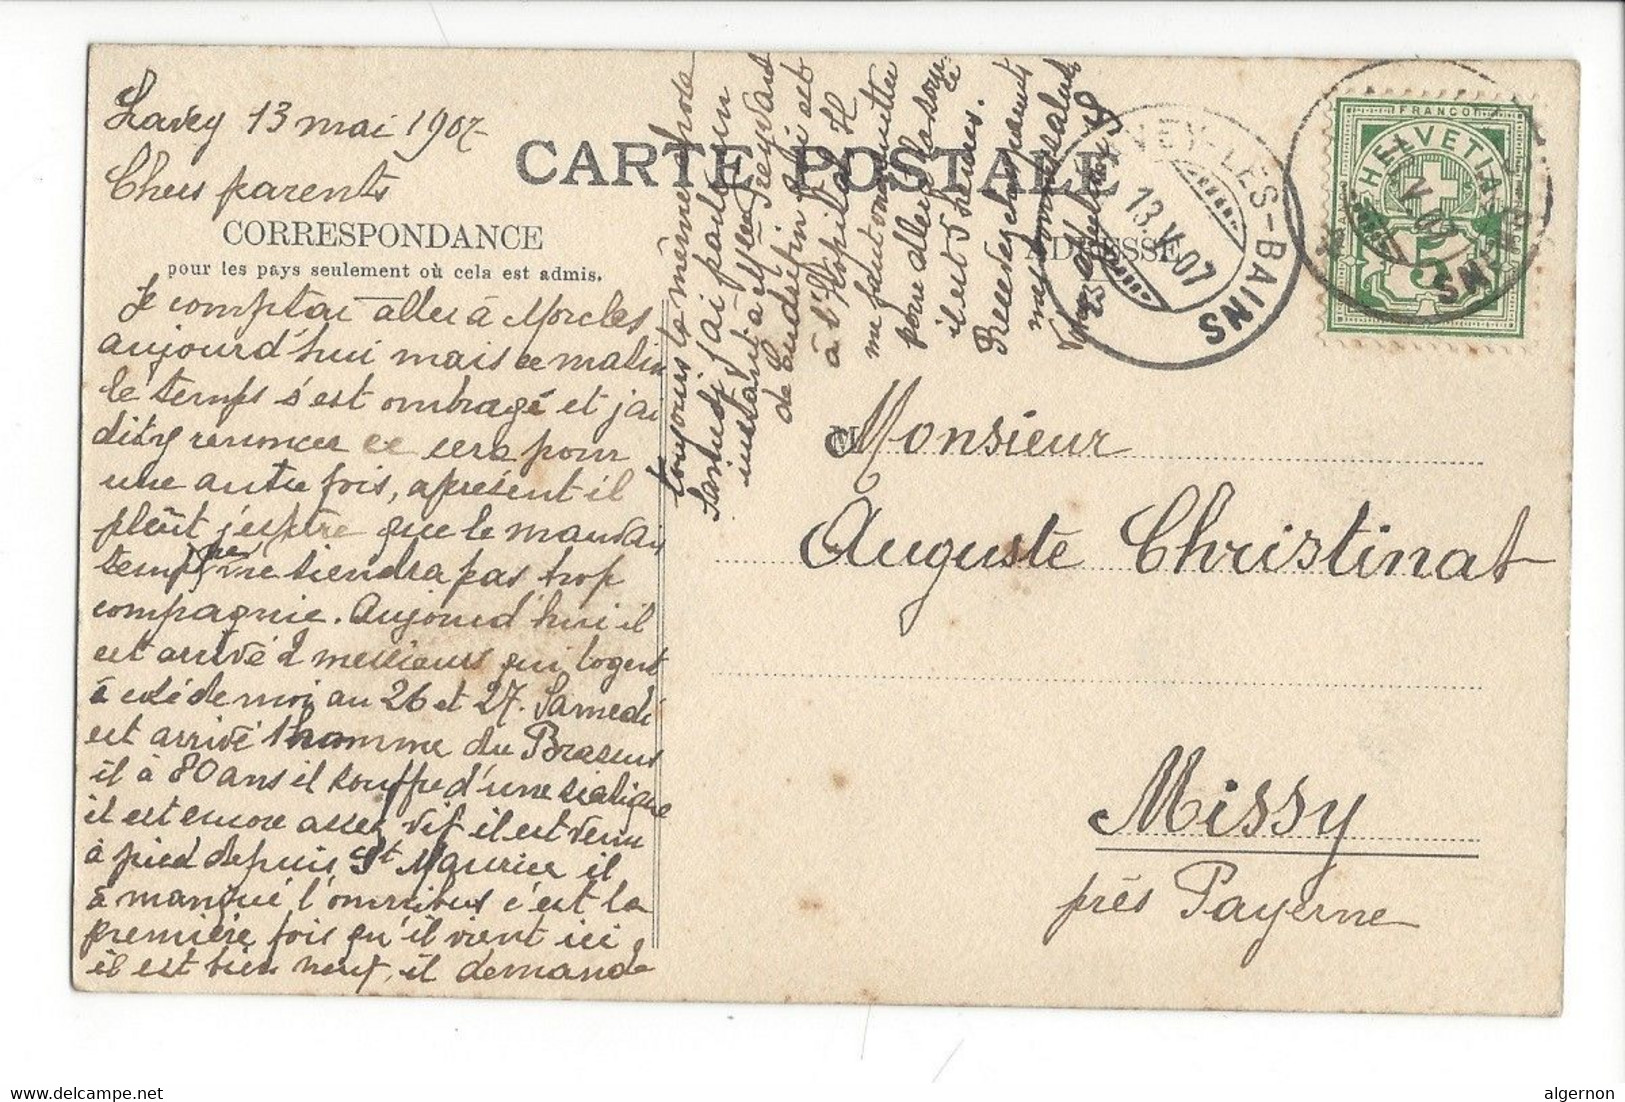 Lavey 13 mai 1907
Chers parents
CARTE POSTALE
CORRESPONDANCE
pour les pays seulement où cela est admis.
ADRESSE
Je comptai aller à Morcles
aujourd'hui mais ce matin
le temps s'est ombragé et j'ai
dity renoncer ce sera pour
une autre fois, aprésent il
pleût j'espère que le mauvais
temps ne me tiendra pas trop
compagnie. Aujourd'hui il
est arrivé 2 messieurs qui logent
à coté de moi au 26 et 27. Samedi
est arrivé l'homme du Brassus
il à 80 ans il souffre d'une siatique
il est encore assez vif il est venu
à pied depuis St Maurice il
à manqué l'omnibus c'est la
première fois qu'il vient ici
il est bien neuf, il demande
toujours la même chose
Samedi j'ai parlé un
instant à Mlle Treyvaud
de Cudrefin elle est
à l'Hopital. Il
me faut vous quitter
pour aller la soupe
il est 5 heures.
Recevez chers parents
mes bonnes salut.
LAVEY-LES-BAINS
13.V.07
FRANCO
HELVETIA
5
V.07
BAINS
M
Monsieur
Auguste Christinat
Missy
près Payerne
algernon